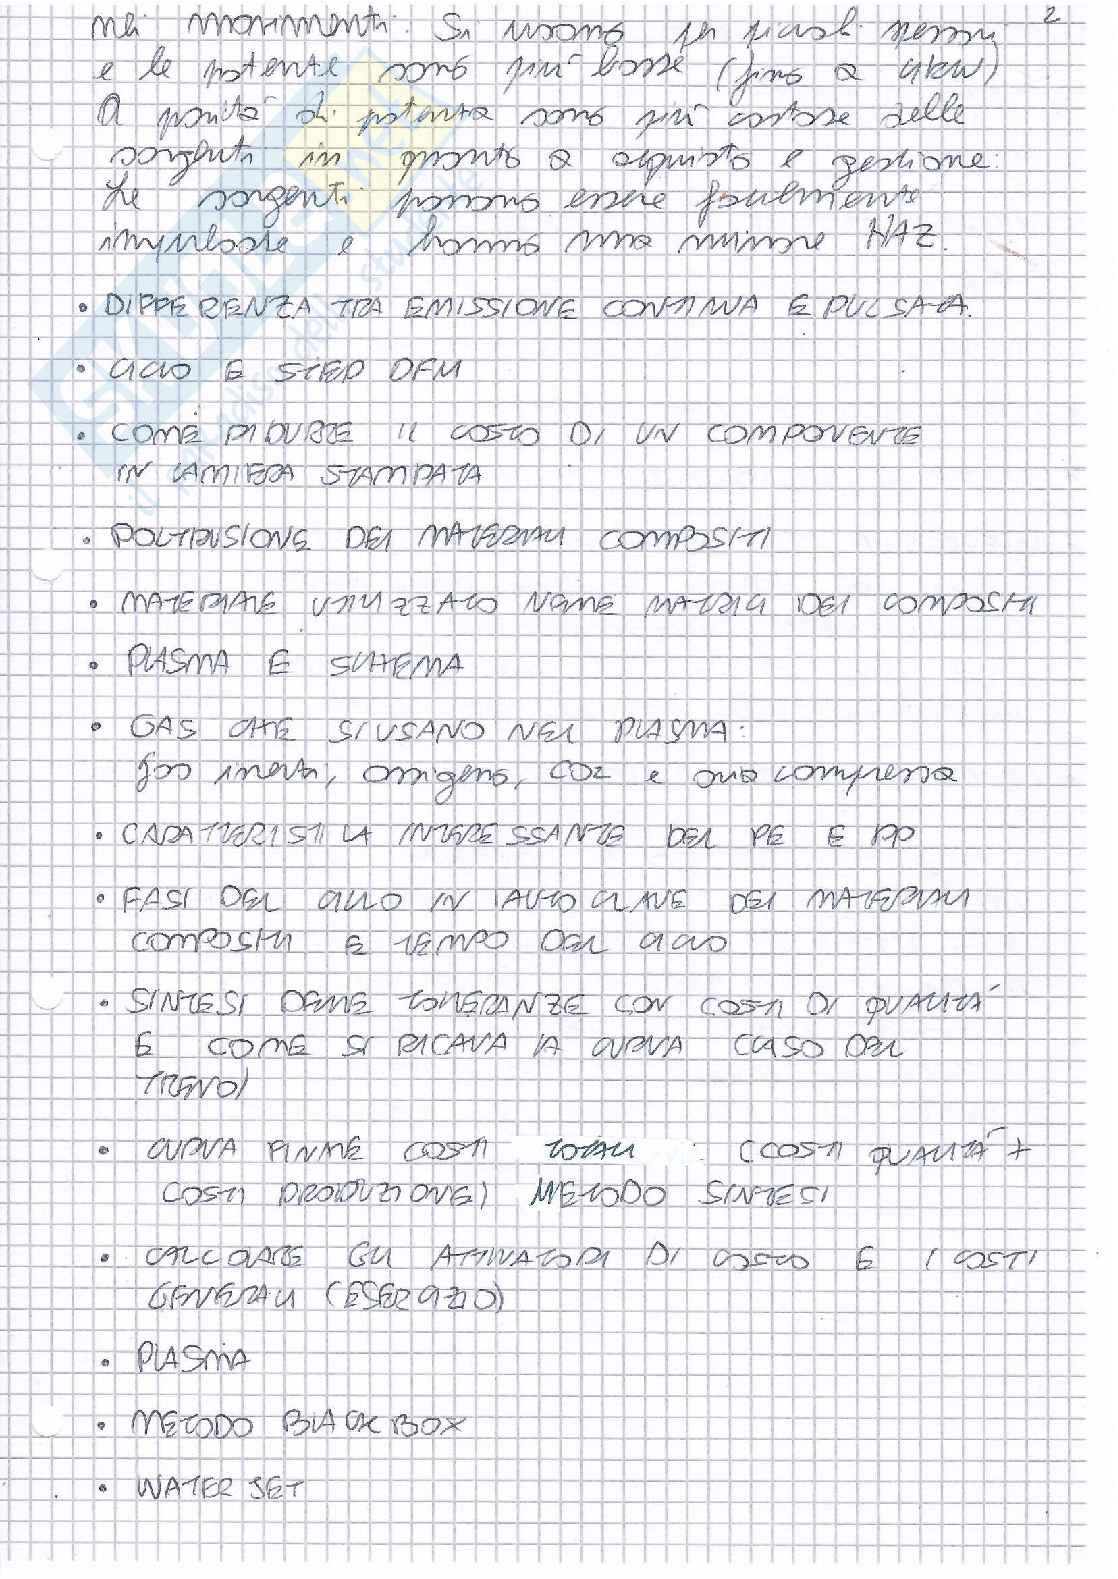 2
nei movimenti. Si usano per piccoli spessori
e le potenze sono più basse (fino a 4kW)
A parità di potenza sono più costose delle
sorgenti in quanto a acquisto e gestione.
Le sorgenti possono essere facilmente
impulsate e hanno una minore HAZ.
• DIFFERENZA TRA EMISSIONE CONTINUA E PULSATA.
• CICLO E STEP DFM
• COME RIDURRE IL COSTO DI UN COMPONENTE
IN LAMIERA STAMPATA
• POLTRUSIONE DEI MATERIALI COMPOSITI
• MATERIALE UTILIZZATO NELLE MATRICI DEI COMPOSITI
• PLASMA E SCHEMA
• GAS CHE SI USANO NEL PLASMA:
gas inerti, ossigeno, CO2 e aria compressa
• CARATTERISTICA INTERESSANTE DEL PE E PP
• FASI DEL CICLO IN AUTOCLAVE DEI MATERIALI
COMPOSITI E TEMPO DEL CICLO
• SINTESI DELLE TOLLERANZE CON COSTI DI QUALITÀ
E COME SI RICAVA LA CURVA (CASO DEL
TRENO)
• CURVA FINALE COSTI TOTALI : (COSTI QUALITÀ +
COSTI PRODUZIONE) METODO SINTESI
• CALCOLARE GLI ATTIVATORI DI COSTO E I COSTI
GENERALI (ESERCIZIO)
• PLASMA
• METODO BLACK BOX
• WATER JET